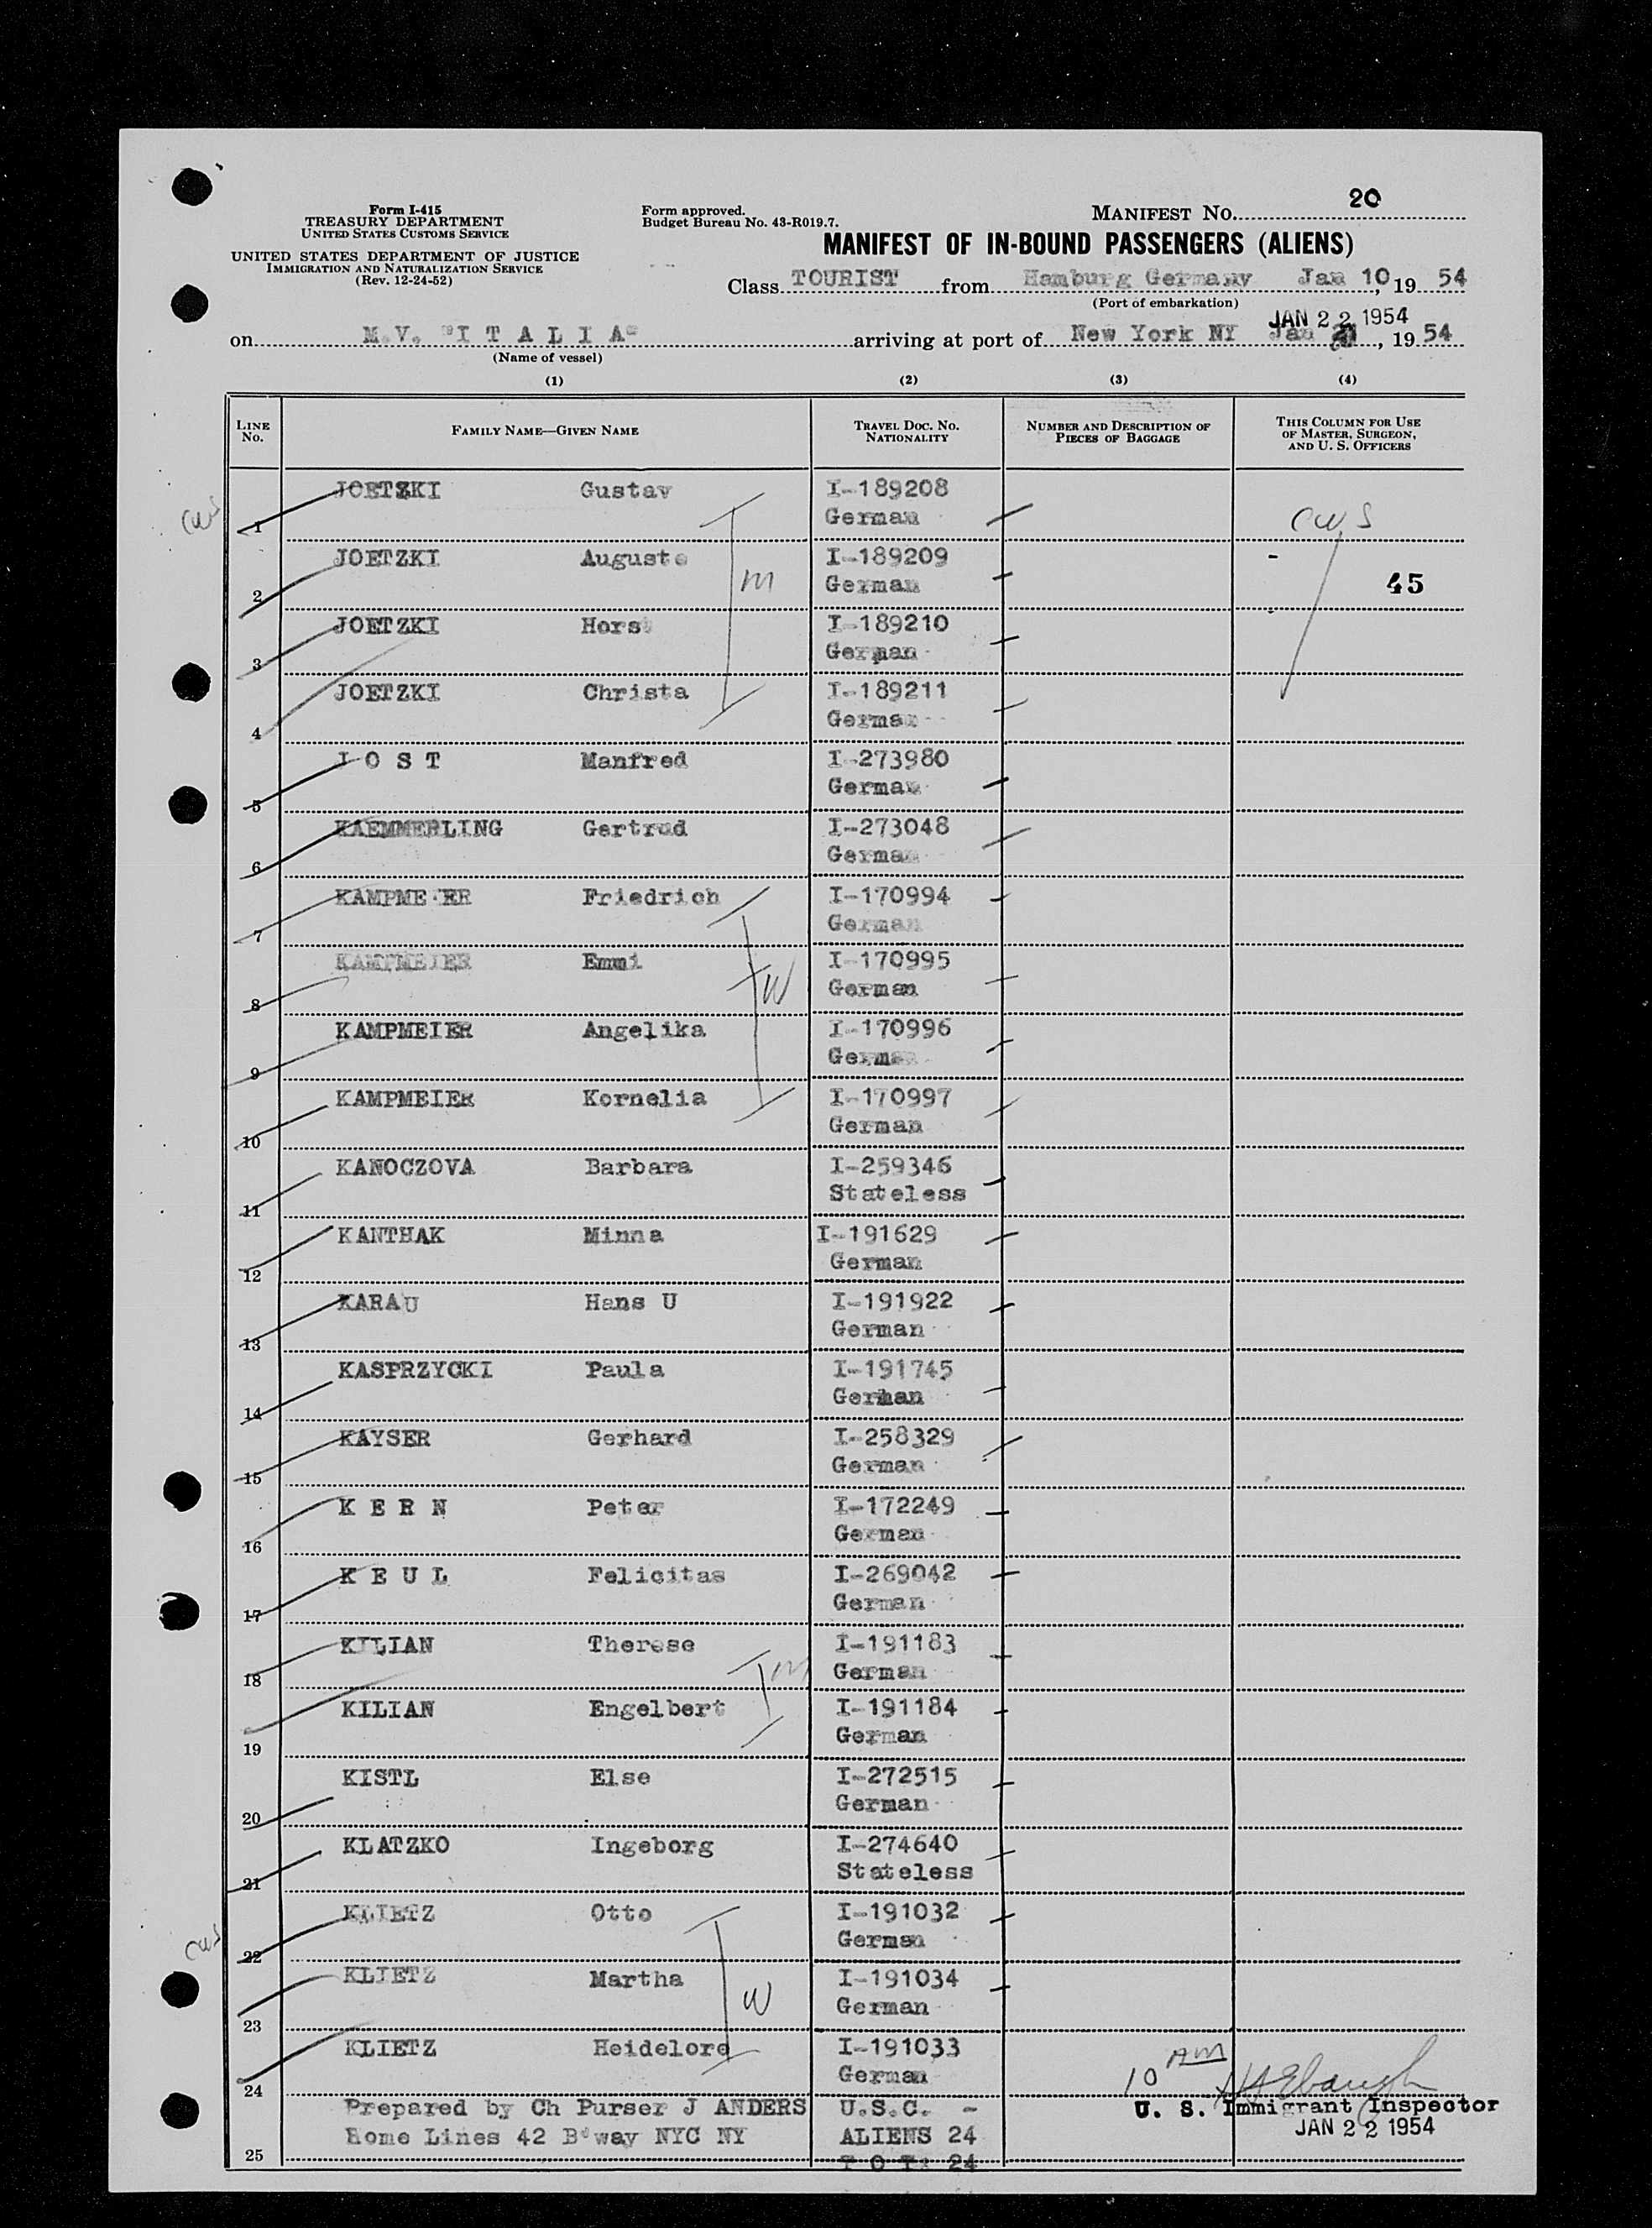 Form I-415
TREASURY DEPARTMENT
UNITED STATES CUSTOMS SERVICE
UNITED STATES DEPARTMENT OF JUSTICE
IMMIGRATION AND NATURALIZATION SERVICE
(Rev. 12-24-52)
Form approved.
Budget Bureau No. 43-R019.7.
MANIFEST NO. 20
MANIFEST OF IN-BOUND PASSENGERS (ALIENS)
Class TOURIST from Hamburg Germany Jan 10, 19 54
(Port of embarkation)
JAN 22 1954
on M.V. "I T A L I A" arriving at port of New York NY Jan , 19 54
(Name of vessel)
(1) (2) (3) (4)
LINE NO. FAMILY NAME—GIVEN NAME TRAVEL DOC. NO. NATIONALITY NUMBER AND DESCRIPTION OF PIECES OF BAGGAGE THIS COLUMN FOR USE OF MASTER, SURGEON, AND U. S. OFFICERS
cws
1 JOETZKI Gustav I-189208 German cws
2 JOETZKI Auguste I-189209 German 45
m
3 JOETZKI Horst I-189210 German
4 JOETZKI Christa I-189211 German
5 J O S T Manfred I-273980 German
6 KAEMMERLING Gertrud I-273048 German
7 KAMPMEIER Friedrich I-170994 German
8 KAMPMEIER Emmi I-170995 German
W
9 KAMPMEIER Angelika I-170996 German
10 KAMPMEIER Kornelia I-170997 German
11 KANOCZOVA Barbara I-259346 Stateless
12 KANTHAK Minna I-191629 German
13 KARAU Hans U I-191922 German
14 KASPRZYCKI Paula I-191745 German
15 KAYSER Gerhard I-258329 German
16 K E R N Peter I-172249 German
17 K E U L Felicitas I-269042 German
18 KILIAN Therese I-191183 German
m
19 KILIAN Engelbert I-191184 German
20 KISTL Else I-272515 German
21 KLATZKO Ingeborg I-274640 Stateless
cws
22 KLIETZ Otto I-191032 German
23 KLIETZ Martha I-191034 German
W
24 KLIETZ Heidelore I-191033 German
10 AM
Prepared by Ch Purser J ANDERS U.S.C. -
U. S. Immigrant Inspector
Home Lines 42 B'way NYC NY ALIENS 24
JAN 22 1954
25 T O T: 24